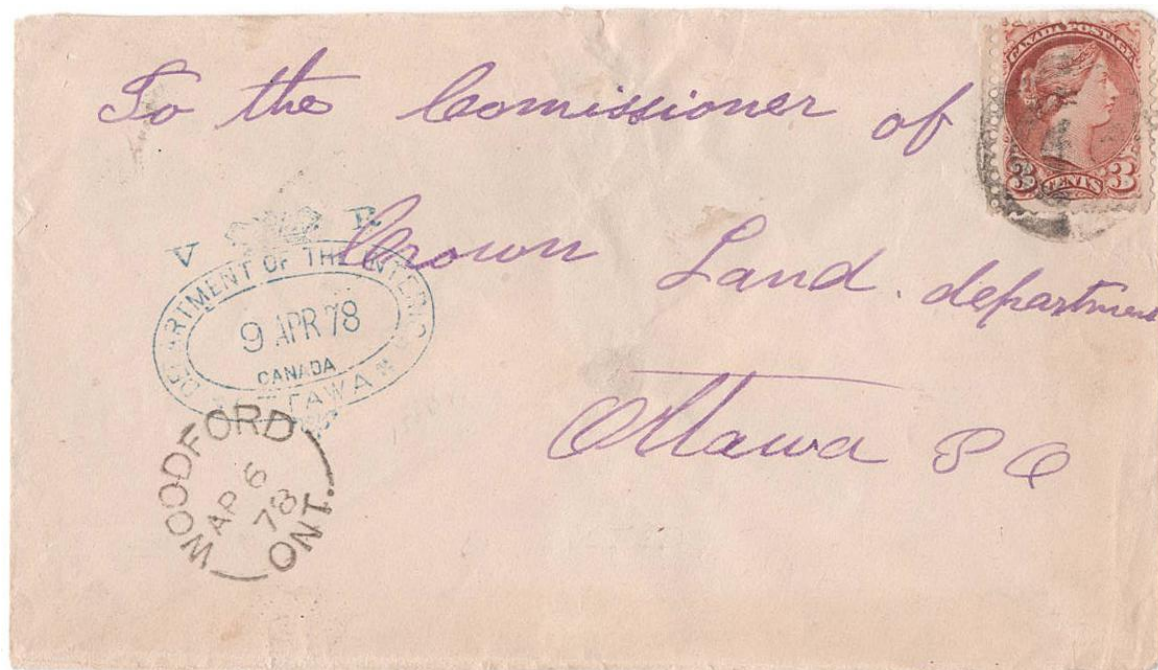 To the Comissioner of
Crown Land. department
Ottawa P O
CANADA POSTAGE
3 CENTS 3
V R
DEPARTMENT OF THE INTERIOR
9 APR 78
CANADA
OTTAWA
WOODFORD
AP 6
78
ONT.